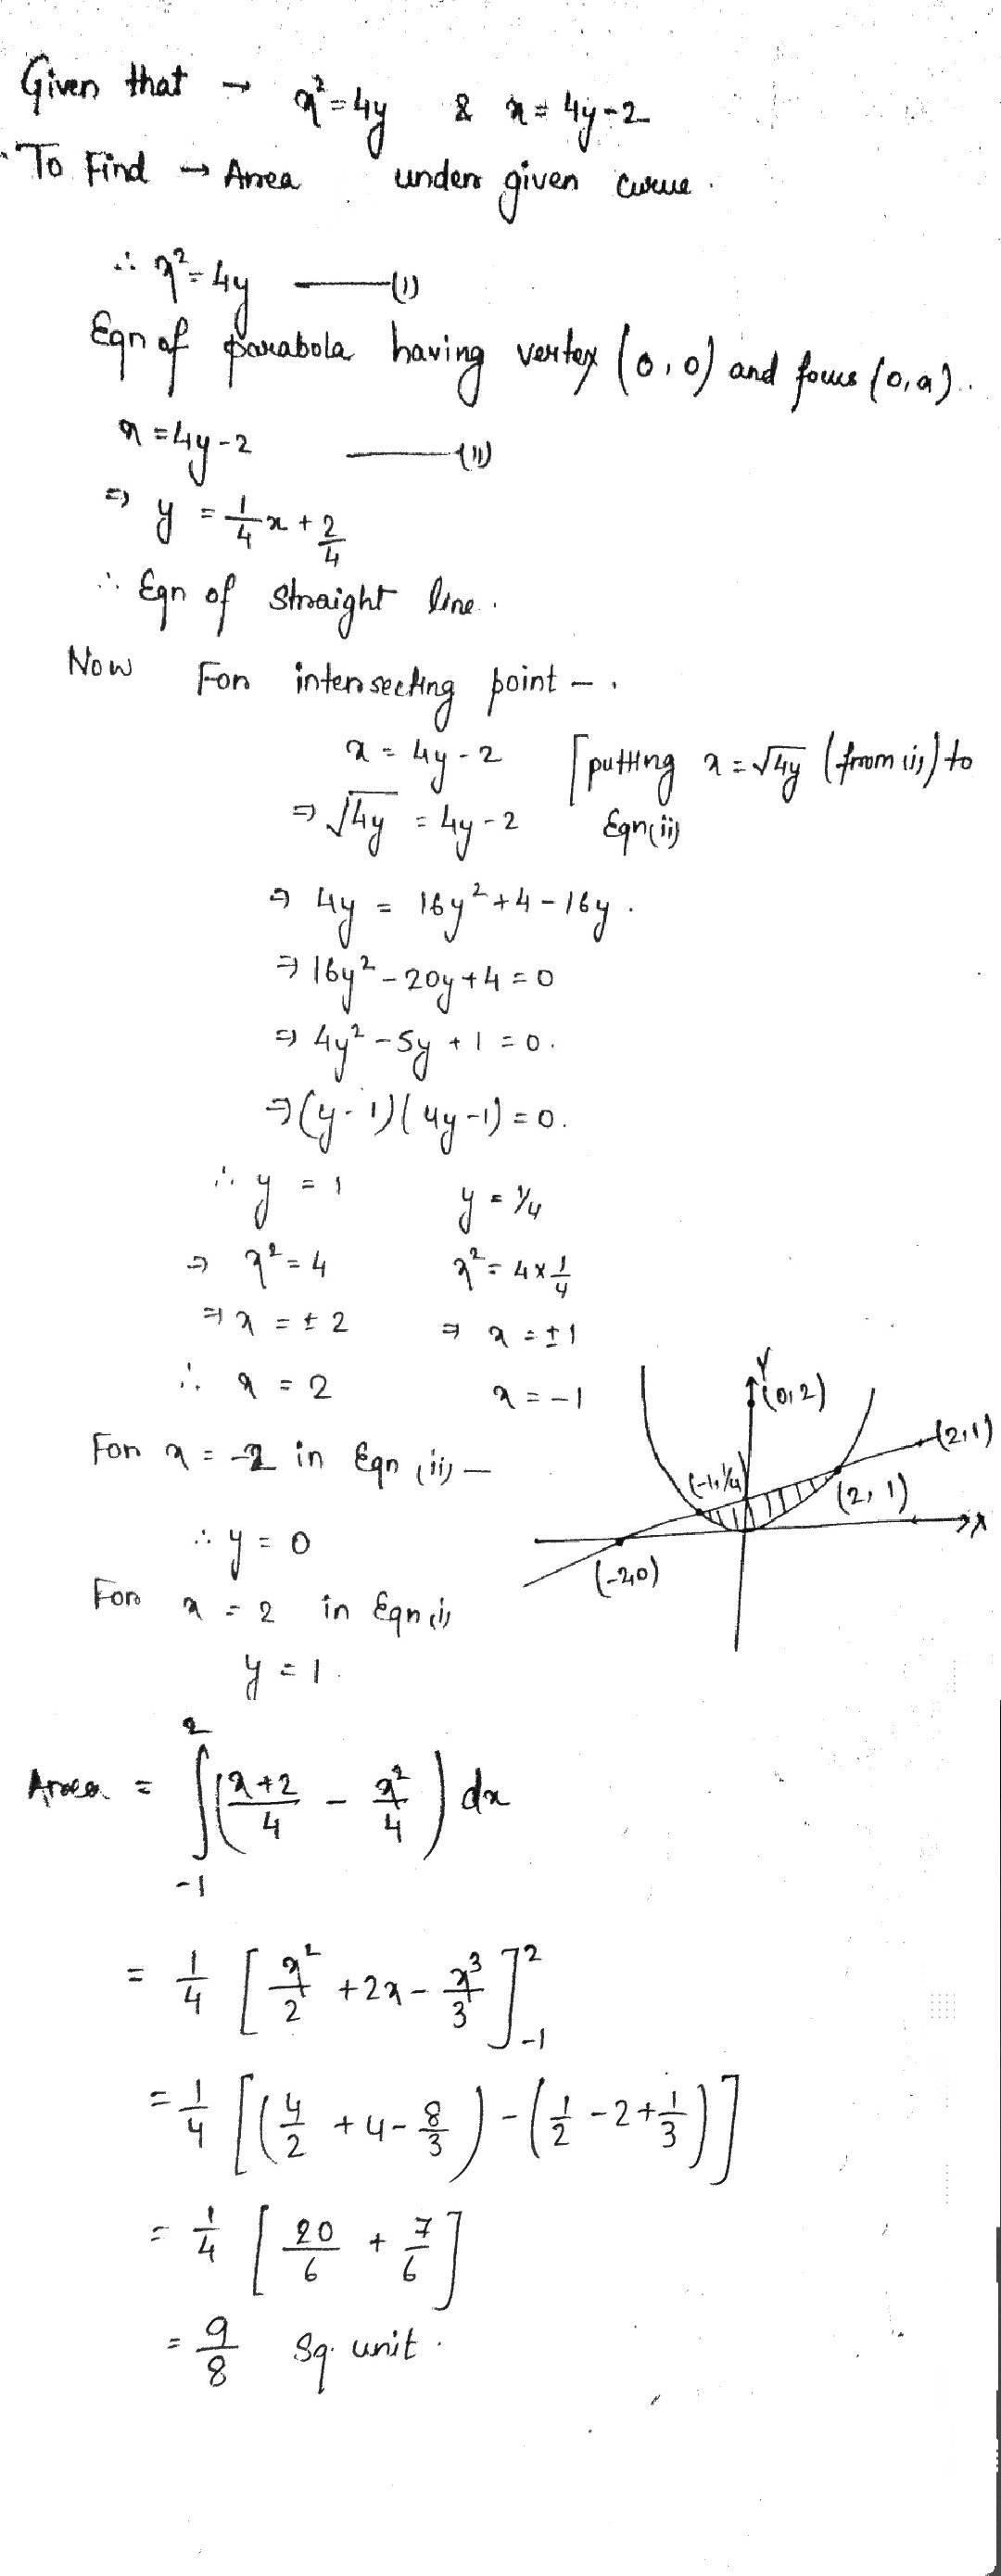 Given that → x² = 4y & x = 4y - 2
To Find → Area under given curve.
∴ x² = 4y ——— (i)
Eqn of parabola having vertex (0,0) and focus (0,a).
x = 4y - 2 ——— (ii)
⇒ y = 1/4 x + 2/4
∴ Eqn of straight line.
Now For intersecting point -.
x = 4y - 2 [putting x = √4y (from (i)) to
⇒ √4y = 4y - 2 Eqn (ii)
⇒ 4y = 16y² + 4 - 16y.
⇒ 16y² - 20y + 4 = 0
⇒ 4y² - 5y + 1 = 0.
⇒ (y - 1)(4y - 1) = 0.
∴ y = 1 y = 1/4
⇒ x² = 4 x² = 4 × 1/4
⇒ x = ± 2 ⇒ x = ± 1
∴ x = 2 x = -1
For x = -2 in Eqn (ii) —
∴ y = 0
For x = 2 in Eqn (i)
y = 1.
Y
(0,2)
(2,1)
(-1,1/4)
(2,1)
X
(-2,0)
Area = ∫₋₁² ((x+2)/4 - x²/4) dx
= 1/4 [x²/2 + 2x - x³/3]₋₁²
= 1/4 [(4/2 + 4 - 8/3) - (1/2 - 2 + 1/3)]
= 1/4 [20/6 + 7/6]
= 9/8 Sq. unit.